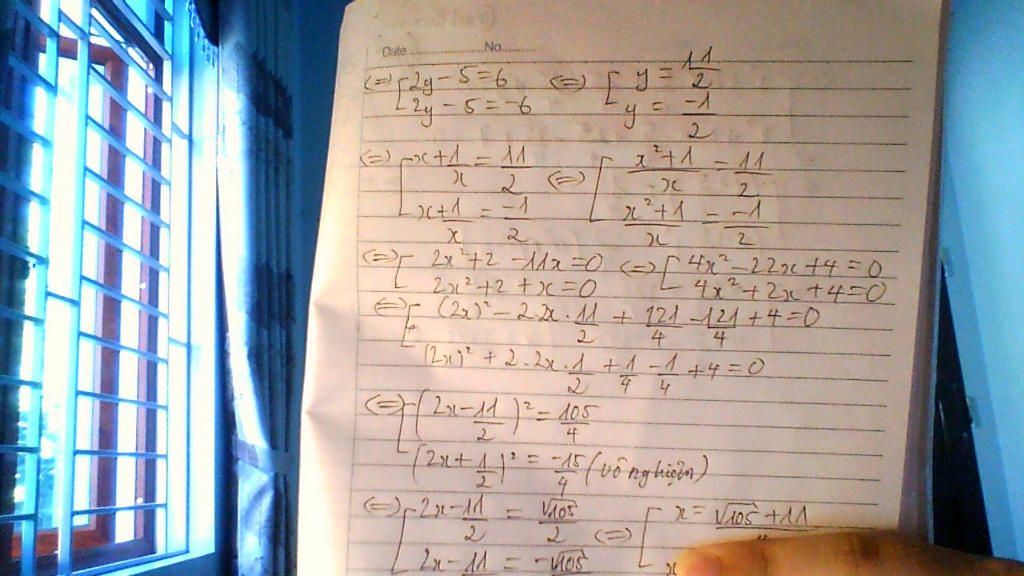 Date No
(=) [ 2y - 5 = 6 (=) [ y = 11/2
2y - 5 = -6 y = -1/2
(=) [ x + 1/x = 11/2 (=) [ (x² + 1)/x = 11/2
x + 1/x = -1/2 (x² + 1)/x = -1/2
(=) [ 2x² + 2 - 11x = 0 (=) [ 4x² - 22x + 4 = 0
2x² + 2 + x = 0 4x² + 2x + 4 = 0
(=) [ (2x)² - 2.2x.11/2 + 121/4 - 121/4 + 4 = 0
(2x)² + 2.2x.1/2 + 1/4 - 1/4 + 4 = 0
(=) [ (2x - 11/2)² = 105/4
(2x + 1/2)² = -15/4 (vô nghiệm)
(=) [ 2x - 11/2 = √105/2 (=) [ x = √105 + 11
2x - 11 = -√105 x